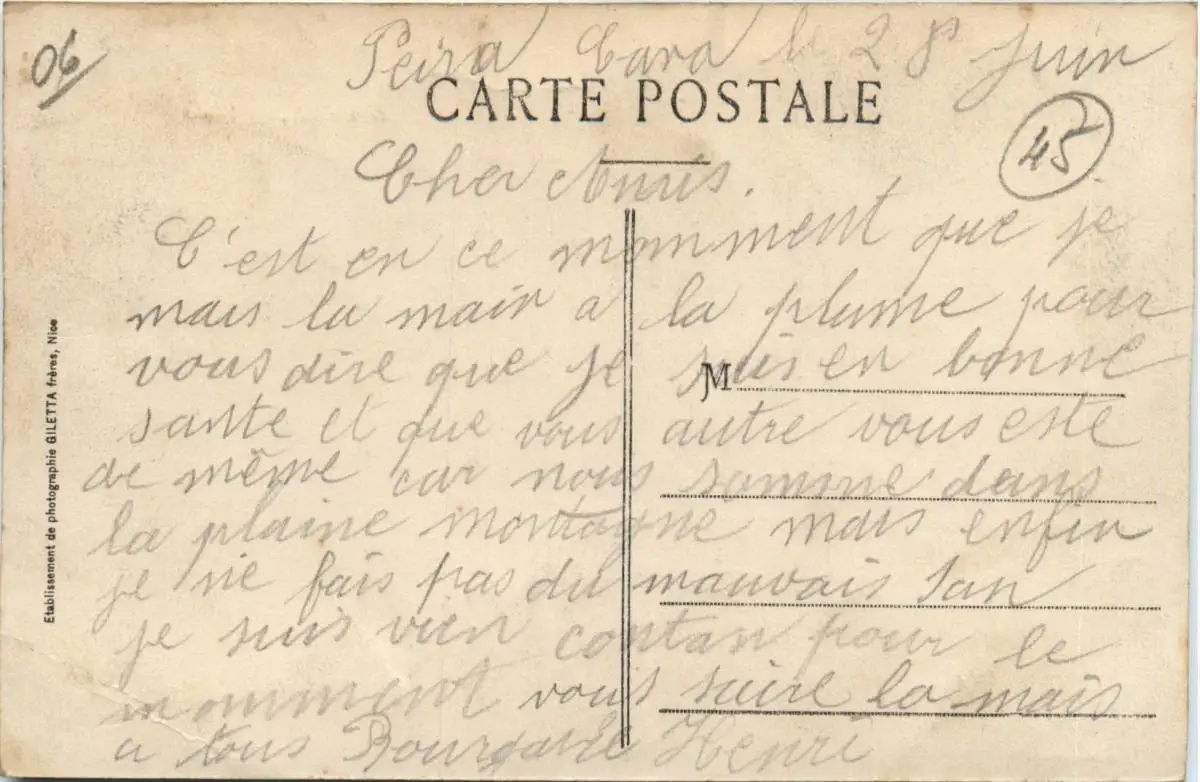 06
Peira Cava le 28 Juin
CARTE POSTALE
45
Cher Amis.
C'est en ce momment que je
mais la main a la plume pour
vous dire que je suis en bonne
M
sante et que vous autre vous este
de même car nous somme dans
la plaine montagne mais enfin
je ne fais pas du mauvais san
je suis vien contan pour le
momment vous saire la mais
a tous Henri
Etablissement de photographie GILETTA frères, Nice